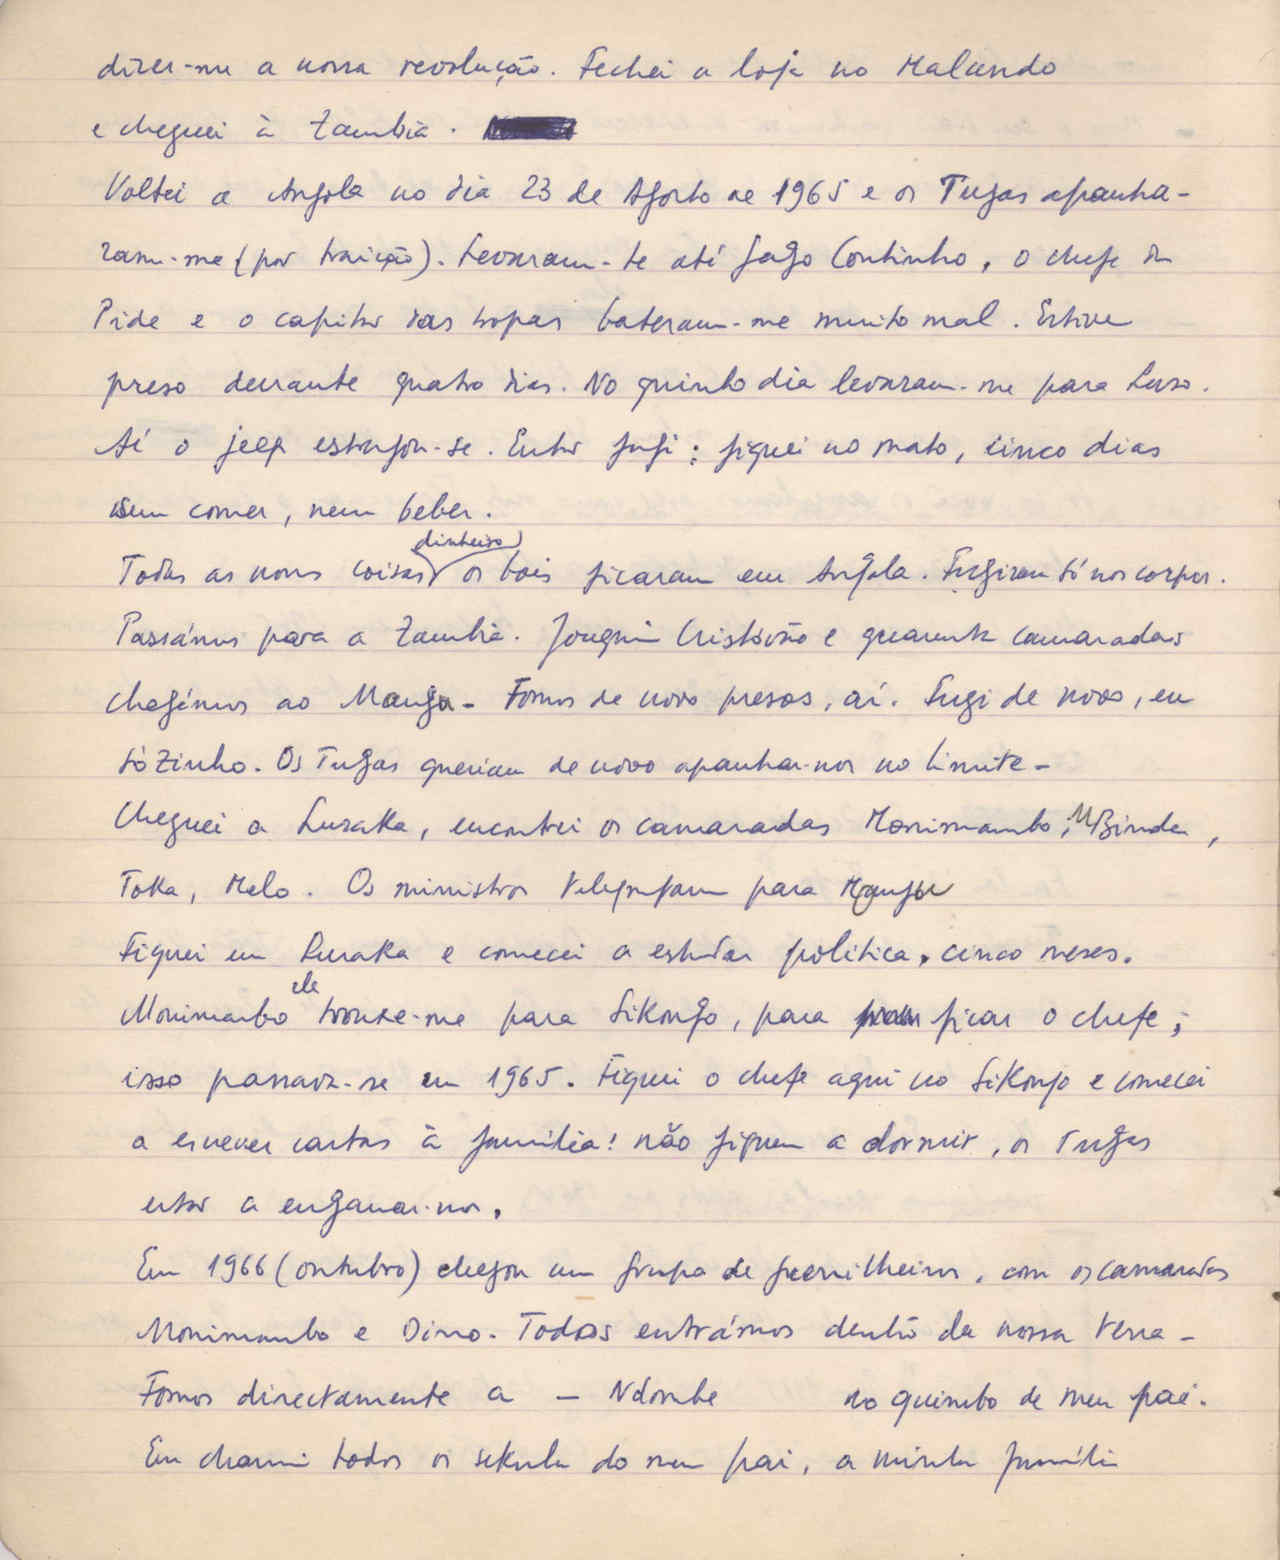 dizer-me a nossa revolução. Fechei a loja no Malundo
e cheguei à Zambia.
Voltei a Angola no dia 23 de Agosto de 1965 e os Tugas apanha-
ram-me (por traição). Levaram-te até Gago Coutinho, o chefe da
Pide e o capitão das tropas bateram-me muito mal. Estive
preso durante quatro dias. No quinto dia levaram-me para Luso.
Aí o jeep estragou-se. Então fugi; fiquei no mato, cinco dias
sem comer, nem beber.
dinheiro
Todas as nossas coisas os bois ficaram em Angola. Fugiram só nos corpos.
Passámos para a Zambia. Joaquim Cristóvão e quarenta camaradas
chegámos ao Mongu. Fomos de novo presos, aí. Fugi de novo, eu
sòzinho. Os Tugas queriam de novo apanhar-nos no limite.
Cheguei a Lusaka, encontrei os camaradas Monimambo, M'Binda,
Toka, Melo. Os ministros telegrafam para Mongu
Fiquei em Lusaka e comecei a estudar política, cinco meses.
ele
Monimambo trouxe-me para Sikongo, para ficar o chefe;
isso passava-se em 1965. Fiquei o chefe aqui no Sikongo e comecei
a escrever cartas à família: não fiquem a dormir, os Tugas
estão a enganar-nos.
Em 1966 (outubro) chegou um grupo de guerrilheiros, com os camaradas
Monimambo e Dino. Todos entrámos dentro da nossa terra.
Fomos directamente a — Ndombe no quimbo de meu pai.
Eu chamei todos os sekulu do meu pai, a minha família